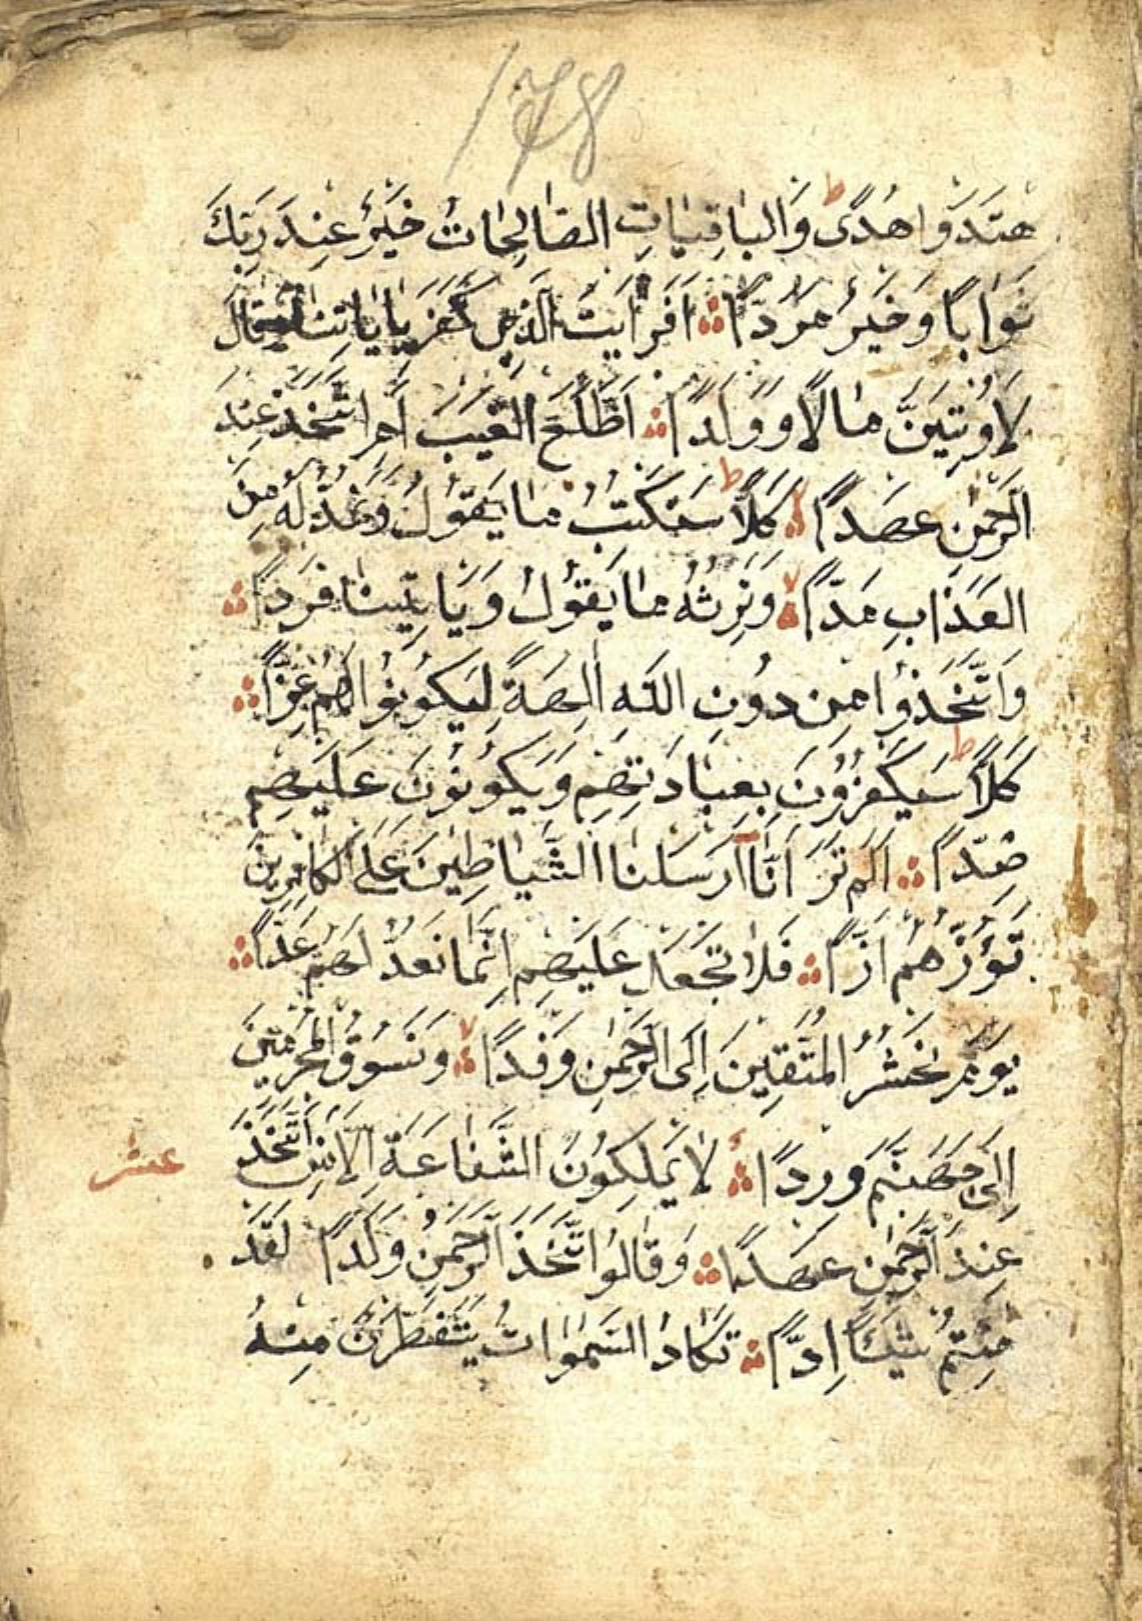 178
هتَدَوْا هُدًى ط وَالبَاقِيَاتِ الصَّالِحَاتُ خَيْرٌ عِنْدَ رَبِّكَ
ثَوَابًا وَخَيْرٌ مَرَدًّا اَفَرَاَيْتَ الَّذِي كَفَرَ بِاٰيَاتِنَا وَقَالَ
لَاُوتَيَنَّ مَالًا وَوَلَدًا اَطَّلَعَ الْغَيْبَ اَمِ اتَّخَذَ عِنْدَ
الرَّحْمٰنِ عَهْدًا لا كَلَّا ط سَنَكْتُبُ مَا يَقُولُ وَنَمُدُّ لَهُ مِنَ
العَذَابِ مَدًّا لا وَنَرِثُهُ مَا يَقُولُ وَيَاْتِينَا فَرْدًا
وَاتَّخَذُوا مِنْ دُونِ اللّٰهِ اٰلِهَةً لِيَكُونُوا لَهُمْ عِزًّا
كَلَّا ط سَيَكْفُرُونَ بِعِبَادَتِهِمْ وَيَكُونُونَ عَلَيْهِمْ
ضِدًّا اَلَمْ تَرَ اَنَّا اَرْسَلْنَا الشَّيَاطِينَ عَلَى الْكَافِرِينَ
تَؤُزُّهُمْ اَزًّا فَلَا تَعْجَلْ عَلَيْهِمْ اِنَّمَا نَعُدُّ لَهُمْ عَدًّا
يَوْمَ نَحْشُرُ الْمُتَّقِينَ اِلَى الرَّحْمٰنِ وَفْدًا لا وَنَسُوقُ الْمُجْرِمِينَ
اِلَى جَهَنَّمَ وِرْدًا لَا يَمْلِكُونَ الشَّفَاعَةَ اِلَّا مَنِ اتَّخَذَ
عشر
عِنْدَ الرَّحْمٰنِ عَهْدًا وَقَالُوا اتَّخَذَ الرَّحْمٰنُ وَلَدًا لَقَدْ
جِئْتُمْ شَيْئًا اِدًّا تَكَادُ السَّمٰوَاتُ يَتَفَطَّرْنَ مِنْهُ